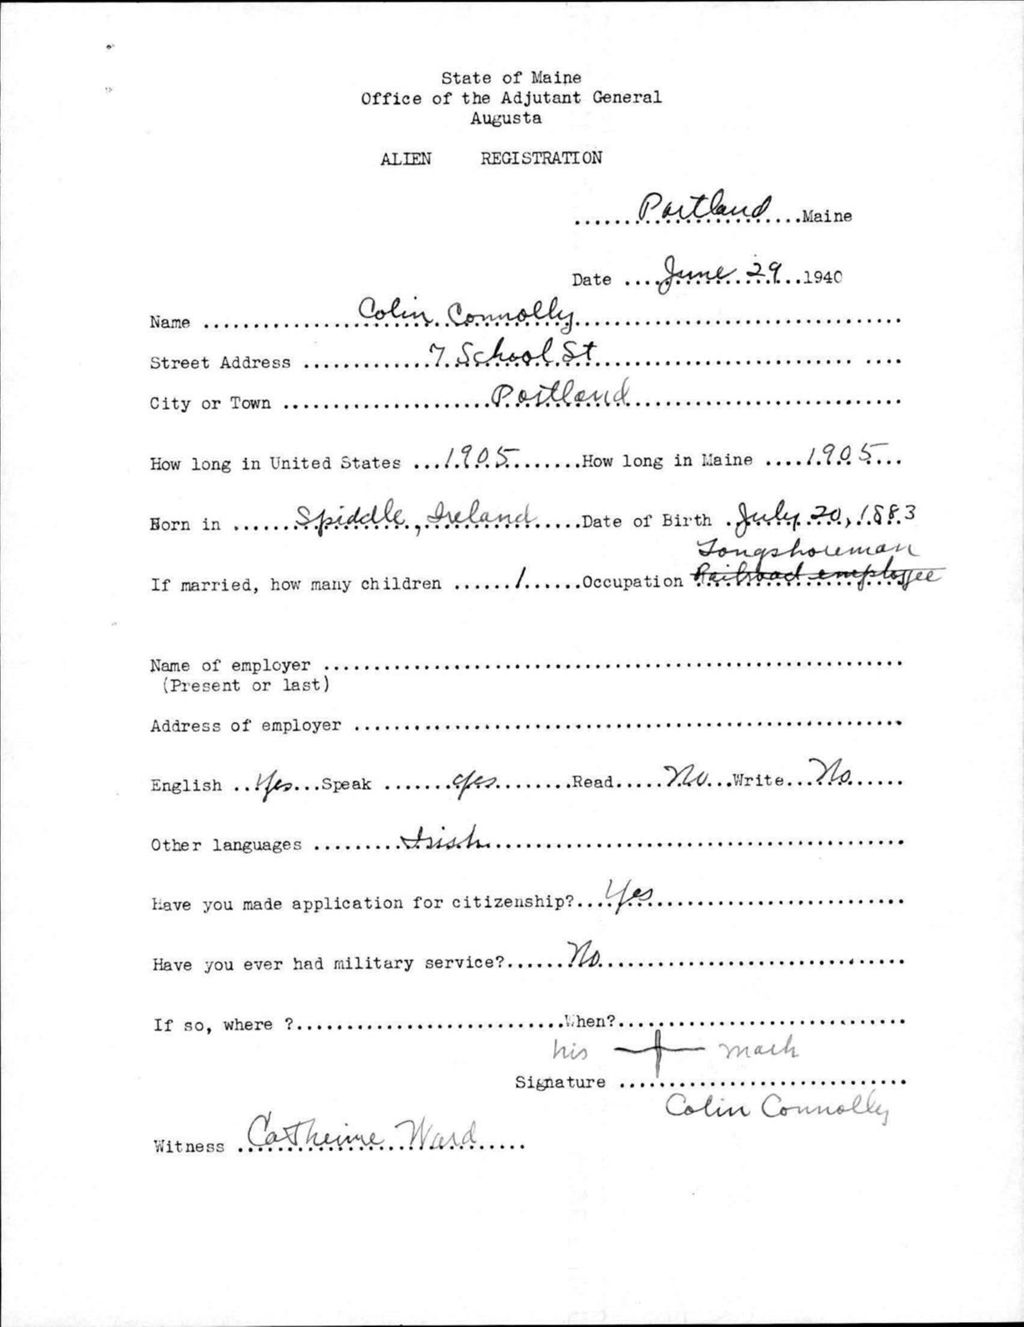 State of Maine
Office of the Adjutant General
Augusta
ALIEN REGISTRATION
......Portland....Maine
Date ....June 29...1940
Name ...............Colin Connolly...............................
Street Address .............7 School St........................... ....
City or Town .....................Portland...........................
How long in United States ...1905.......How long in Maine ....1905...
Born in ......Spiddle, Ireland.....Date of Birth .July 20, 1883
Longshoreman
If married, how many children ......1......Occupation Railroad employee
Name of employer ..........................................................
(Present or last)
Address of employer .......................................................
English ..Yes...Speak .......yes.........Read.....No...Write...No......
Other languages .........Irish..........................................
Have you made application for citizenship?....Yes..........................
Have you ever had military service?......No...............................
If so, where ?...........................When?.............................
his + mark
Signature .............................
Colin Connolly
Witness .Catherine Ward.....